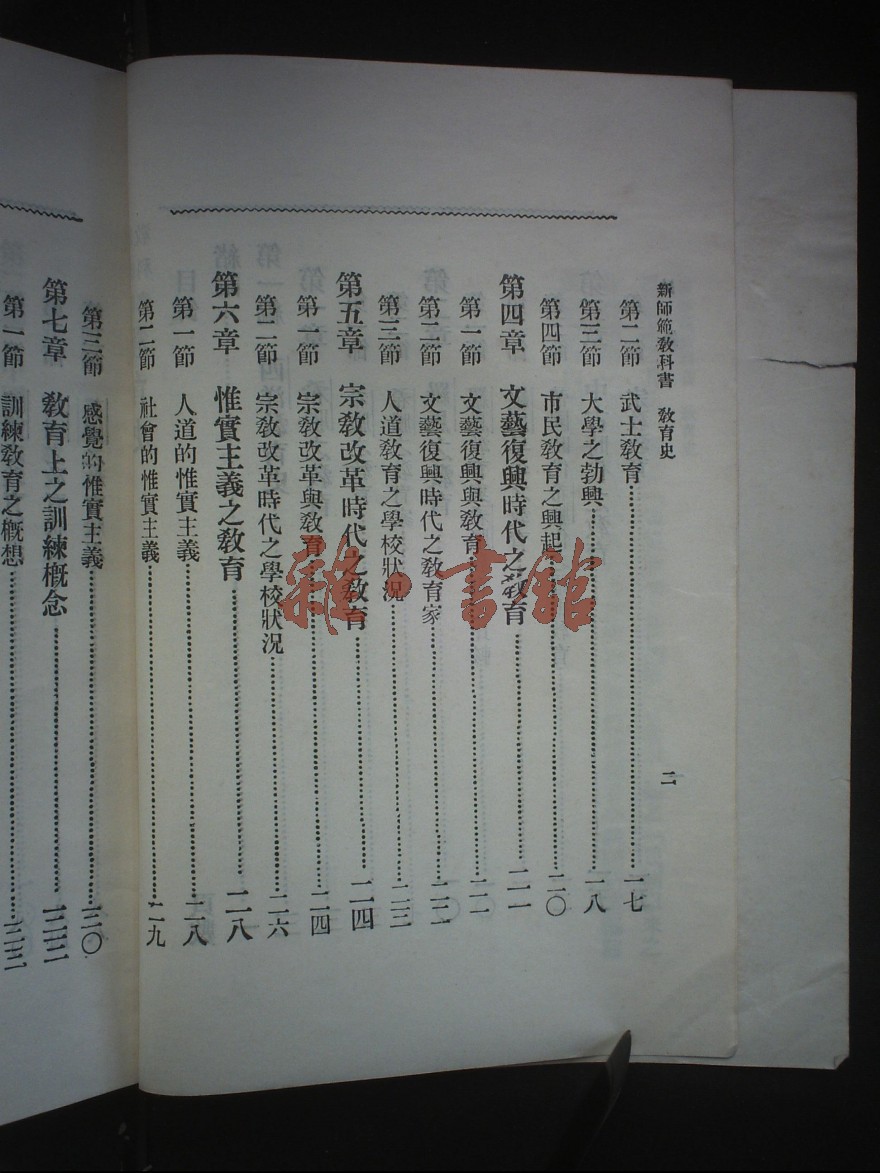 新師範教科書　教育史
二
第二節　武士教育……一七
第三節　大學之勃興……一八
第四節　市民教育之興起……二〇
第四章　文藝復興時代之教育……二一
第一節　文藝復興與教育……二一
第二節　文藝復興時代之教育家……二二
第三節　人道教育之學校狀況……二三
第五章　宗教改革時代之教育……二四
第一節　宗教改革與教育……二四
第二節　宗教改革時代之學校狀況……二六
第六章　惟實主義之教育……二八
第一節　人道的惟實主義……二八
第二節　社會的惟實主義……二九
第三節　感覺的惟實主義……三〇
第七章　教育上之訓練概念……三二
第一節　訓練教育之概想……三二
雜·書館